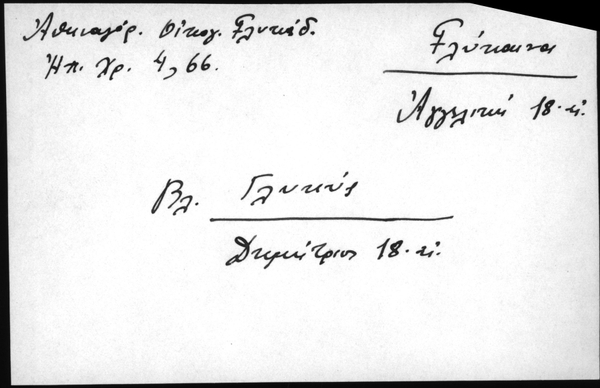 Ἀθηναγόρ. Οἰκογ. Γλυκέδ.
Ἠπ. Χρ. 4, 66.
Γλύκαινα
Ἀγγελικὴ 18. αἰ.
Βλ. Γλυκύς
Δημήτριος 18. αἰ.